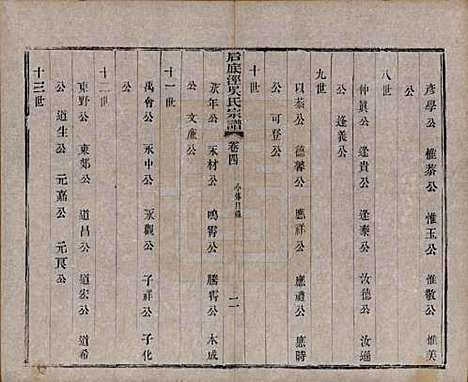 彥學公　惟蓁公　惟玉公　惟敬公　惟美
八世
仲眞公　逢貴公　逢泰公　汝德公　汝遜
公　逢義公
九世
以蓁公　德馨公　應祥公　應禮公　應時
公　可登公
十世
后底涇吳氏宗譜　卷四　小傳目錄　二
永年公　永材公　鳴霄公　騰霄公　木成
公　文慶公
十一世
禹會公　永中公　永觀公　子祥公　子化
公
十二世
東野公　東郊公　道昌公　道宏公　道希
公　道生公　元嘉公　元良公
十三世